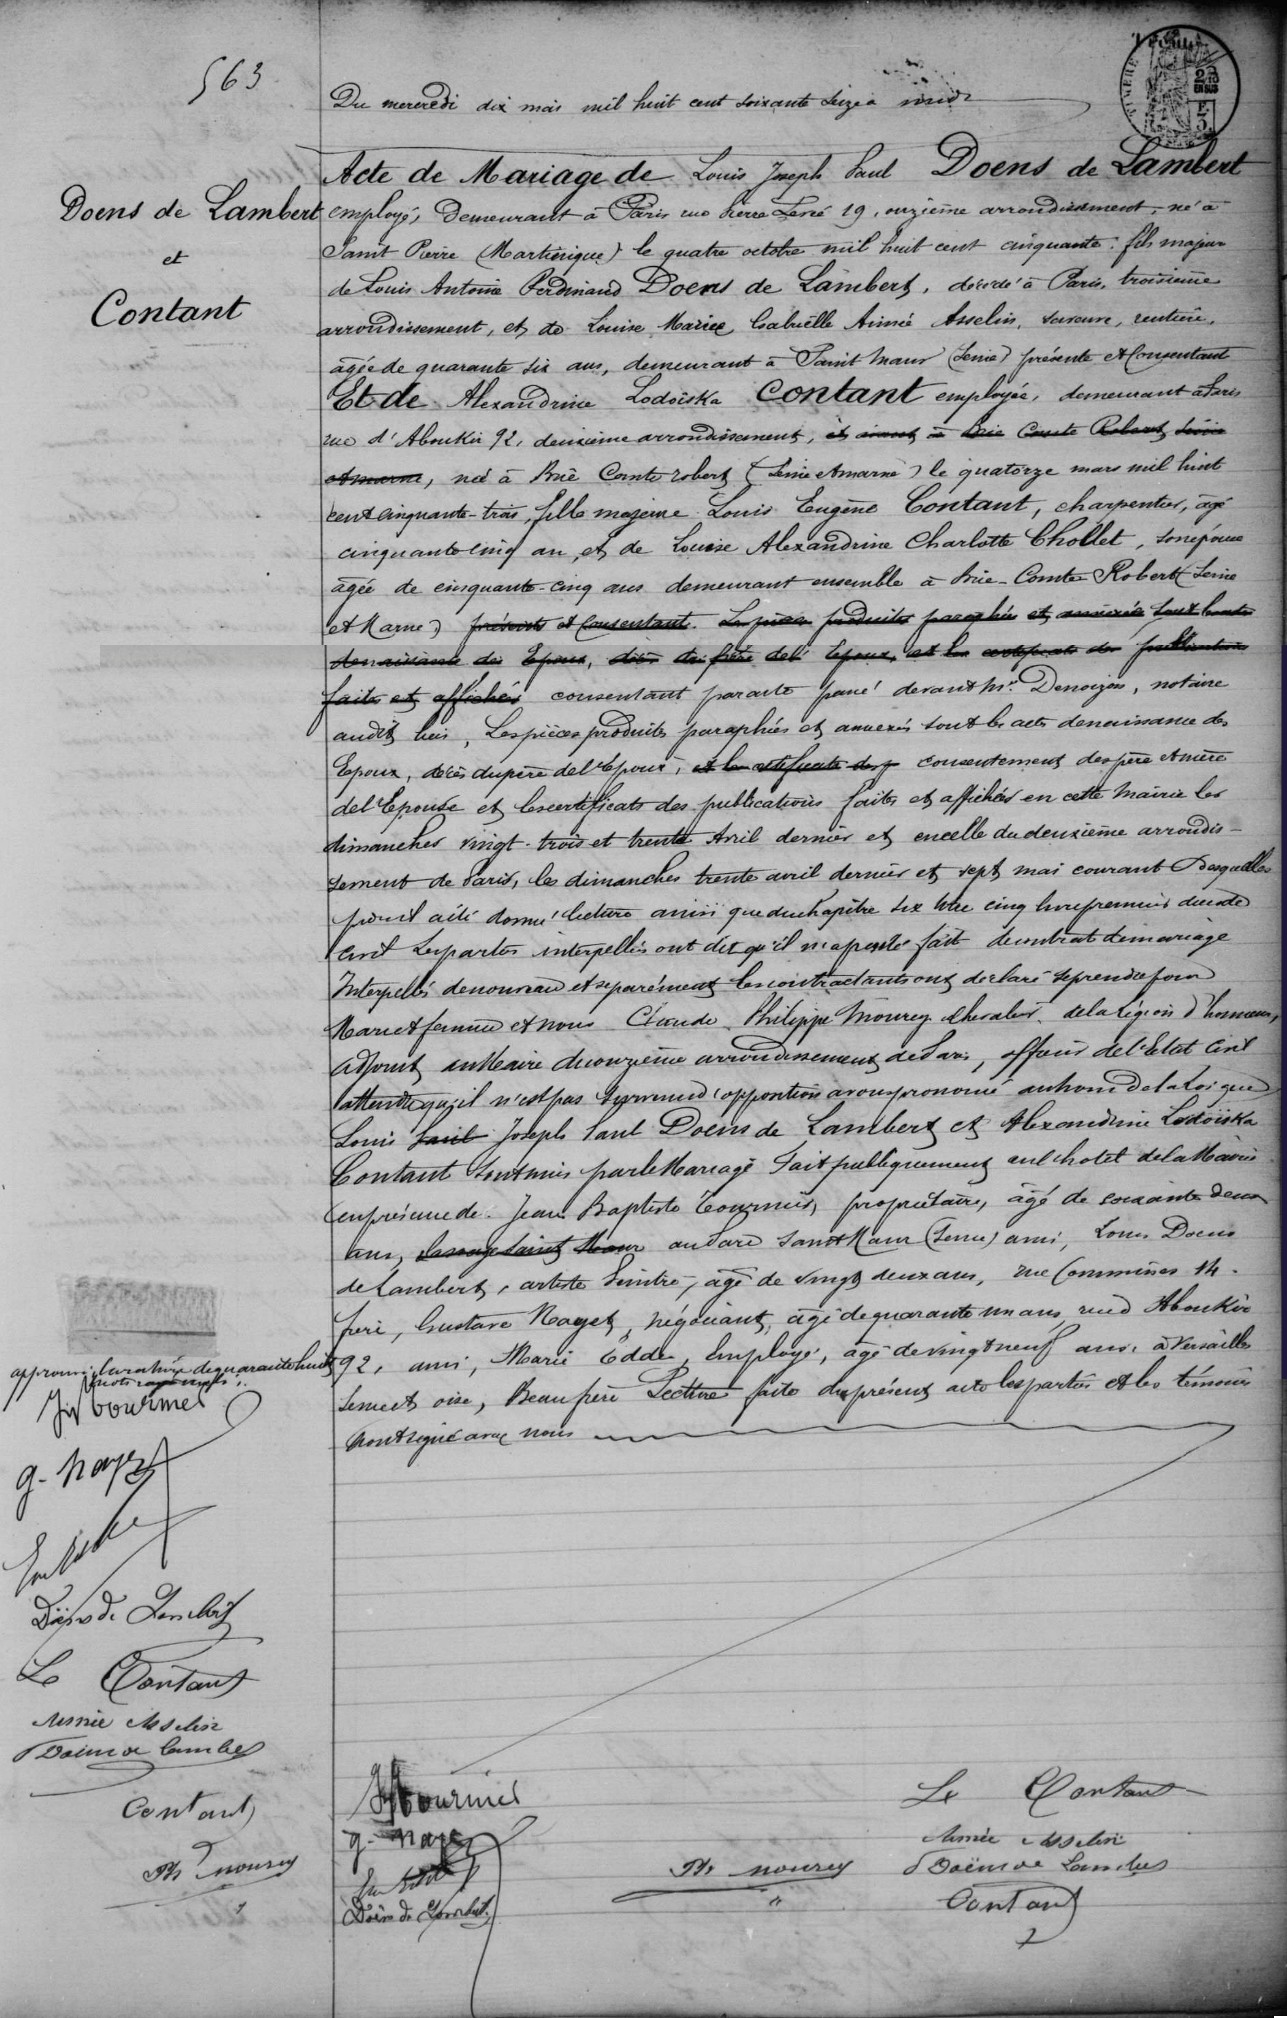 563
Du mercredi dix mai mil huit cent soixante seize à midi
Acte de Mariage de Louis Joseph Paul Doens de Lambert
Doens de Lambert
et
Contant
employé, demeurant à Paris rue Pierre Levé 19, onzième arrondissement, né à
Saint Pierre (Martinique) le quatre octobre mil huit cent cinquante. fils majeur
de Louis Antoine Ferdinand Doens de Lambert, décédé à Paris, troisième
arrondissement, et de Louise Gabrielle Aimée Asselin, sa veuve, rentière,
âgée de quarante six ans, demeurant à Saint Maur (Seine) présente et Consentant
Et de Alexandrine Lodoïska Contant employée, demeurant à Paris
rue d'Aboukir 92, deuxième arrondissement, et à Brie Comte Robert Seine
et marne, née à Brie Comte robert (Seine et marne) le quatorze mars mil huit
cent cinquante-trois, fille majeure Louis Eugène Contant, charpentier, âgé
cinquante cinq an, et de Louise Alexandrine Charlotte Chollet, son épouse
âgée de cinquante-cinq ans demeurant ensemble à Brie-Comte Robert (Seine
et Marne) présents et Consentant. Les pièces produites paraphées et annexées sont les actes
de naissance des Epoux, décès du père de l'Epoux, et les certificats des publications
faites et affichées consentant par acte passé devant Me. Denoizon, notaire
audit lieu, Les pièces produites paraphées et annexés sont les acte de naissance des
Epoux, décès du père de l'Epoux, et les certificats des p consentement des père et mère
de l'Epouse et les certificats des publications faites et affichées en cette Mairie les
dimanches vingt-trois et trente Avril dernier et en celle du deuxième arrondis-
sement de Paris, les dimanches trente avril dernier et sept mai courant Desquelles
pièces il a été donné lecture ainsi que du chapitre six titre cinq livre premier du code
civil Les parties interpellés ont dit qu'il n'a pas été fait de contrat de mariage
Interpellés de nouveau et séparément les contractants ont déclaré se prendre pour
Mari et femme et nous Claude Philippe Mourey chevalier de la légion d'honneur,
adjoint au Maire du onzième arrondissement de Paris, officier de l'Etat Civil
attendu qu'il n'est pas survenu d'opposition avons prononcé au nom de la Loi que
Louis Paul Joseph Paul Doens de Lambert et Alexandrine Lodoïska
Contant sont unis par le Mariage Fait publiquement en l'hotel de la Mairie
en présence de Jean Baptiste Tournier, propriétaire, âgé de soixante deux
ans, au Parc Saint Maur (Seine) ami, Louis Doens
de Lambert, artiste Peintre, âgé de vingt deux ans, rue Commines 14.
frère, Gustave Nayet, négociant, âgé de quarante un ans, rue d'Aboukir
92, ami, Marie Edde, Employé, âgé de vingt neuf ans, à Versailles
Seine et oise, Beau frère Lecture faite du présent acte les parties et les témoins
l'ont signé avec nous
approuvé la rature de quarante huit
mots rayés nuls
Jb Tournier
g. Nayet
Doëns de Lambert
Le Contant
Aimée Asselin
Doëns de Lambert
Contant
Ph Mourey
Jb Tournier
g. Nayet
Doëns de Lambert
Ph Mourey
Le Contant
Aimée Asselin
Doëns de Lambert
Contant